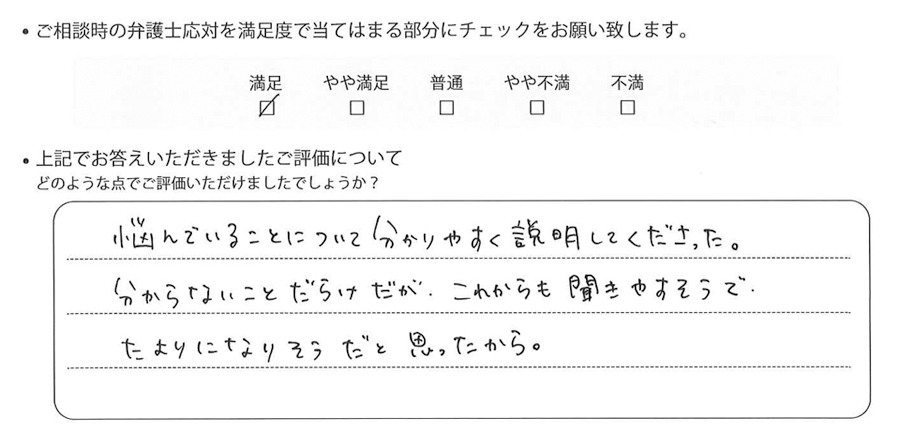 • ご相談時の弁護士応対を満足度で当てはまる部分にチェックをお願い致します。
満足 やや満足 普通 やや不満 不満
☑ □ □ □ □
• 上記でお答えいただきましたご評価について
どのような点でご評価いただけましたでしょうか？
悩んでいることについて分かりやすく説明してくださった。
分からないことだらけだが、これからも聞きやすそうで、
たよりになりそうだと思ったから。